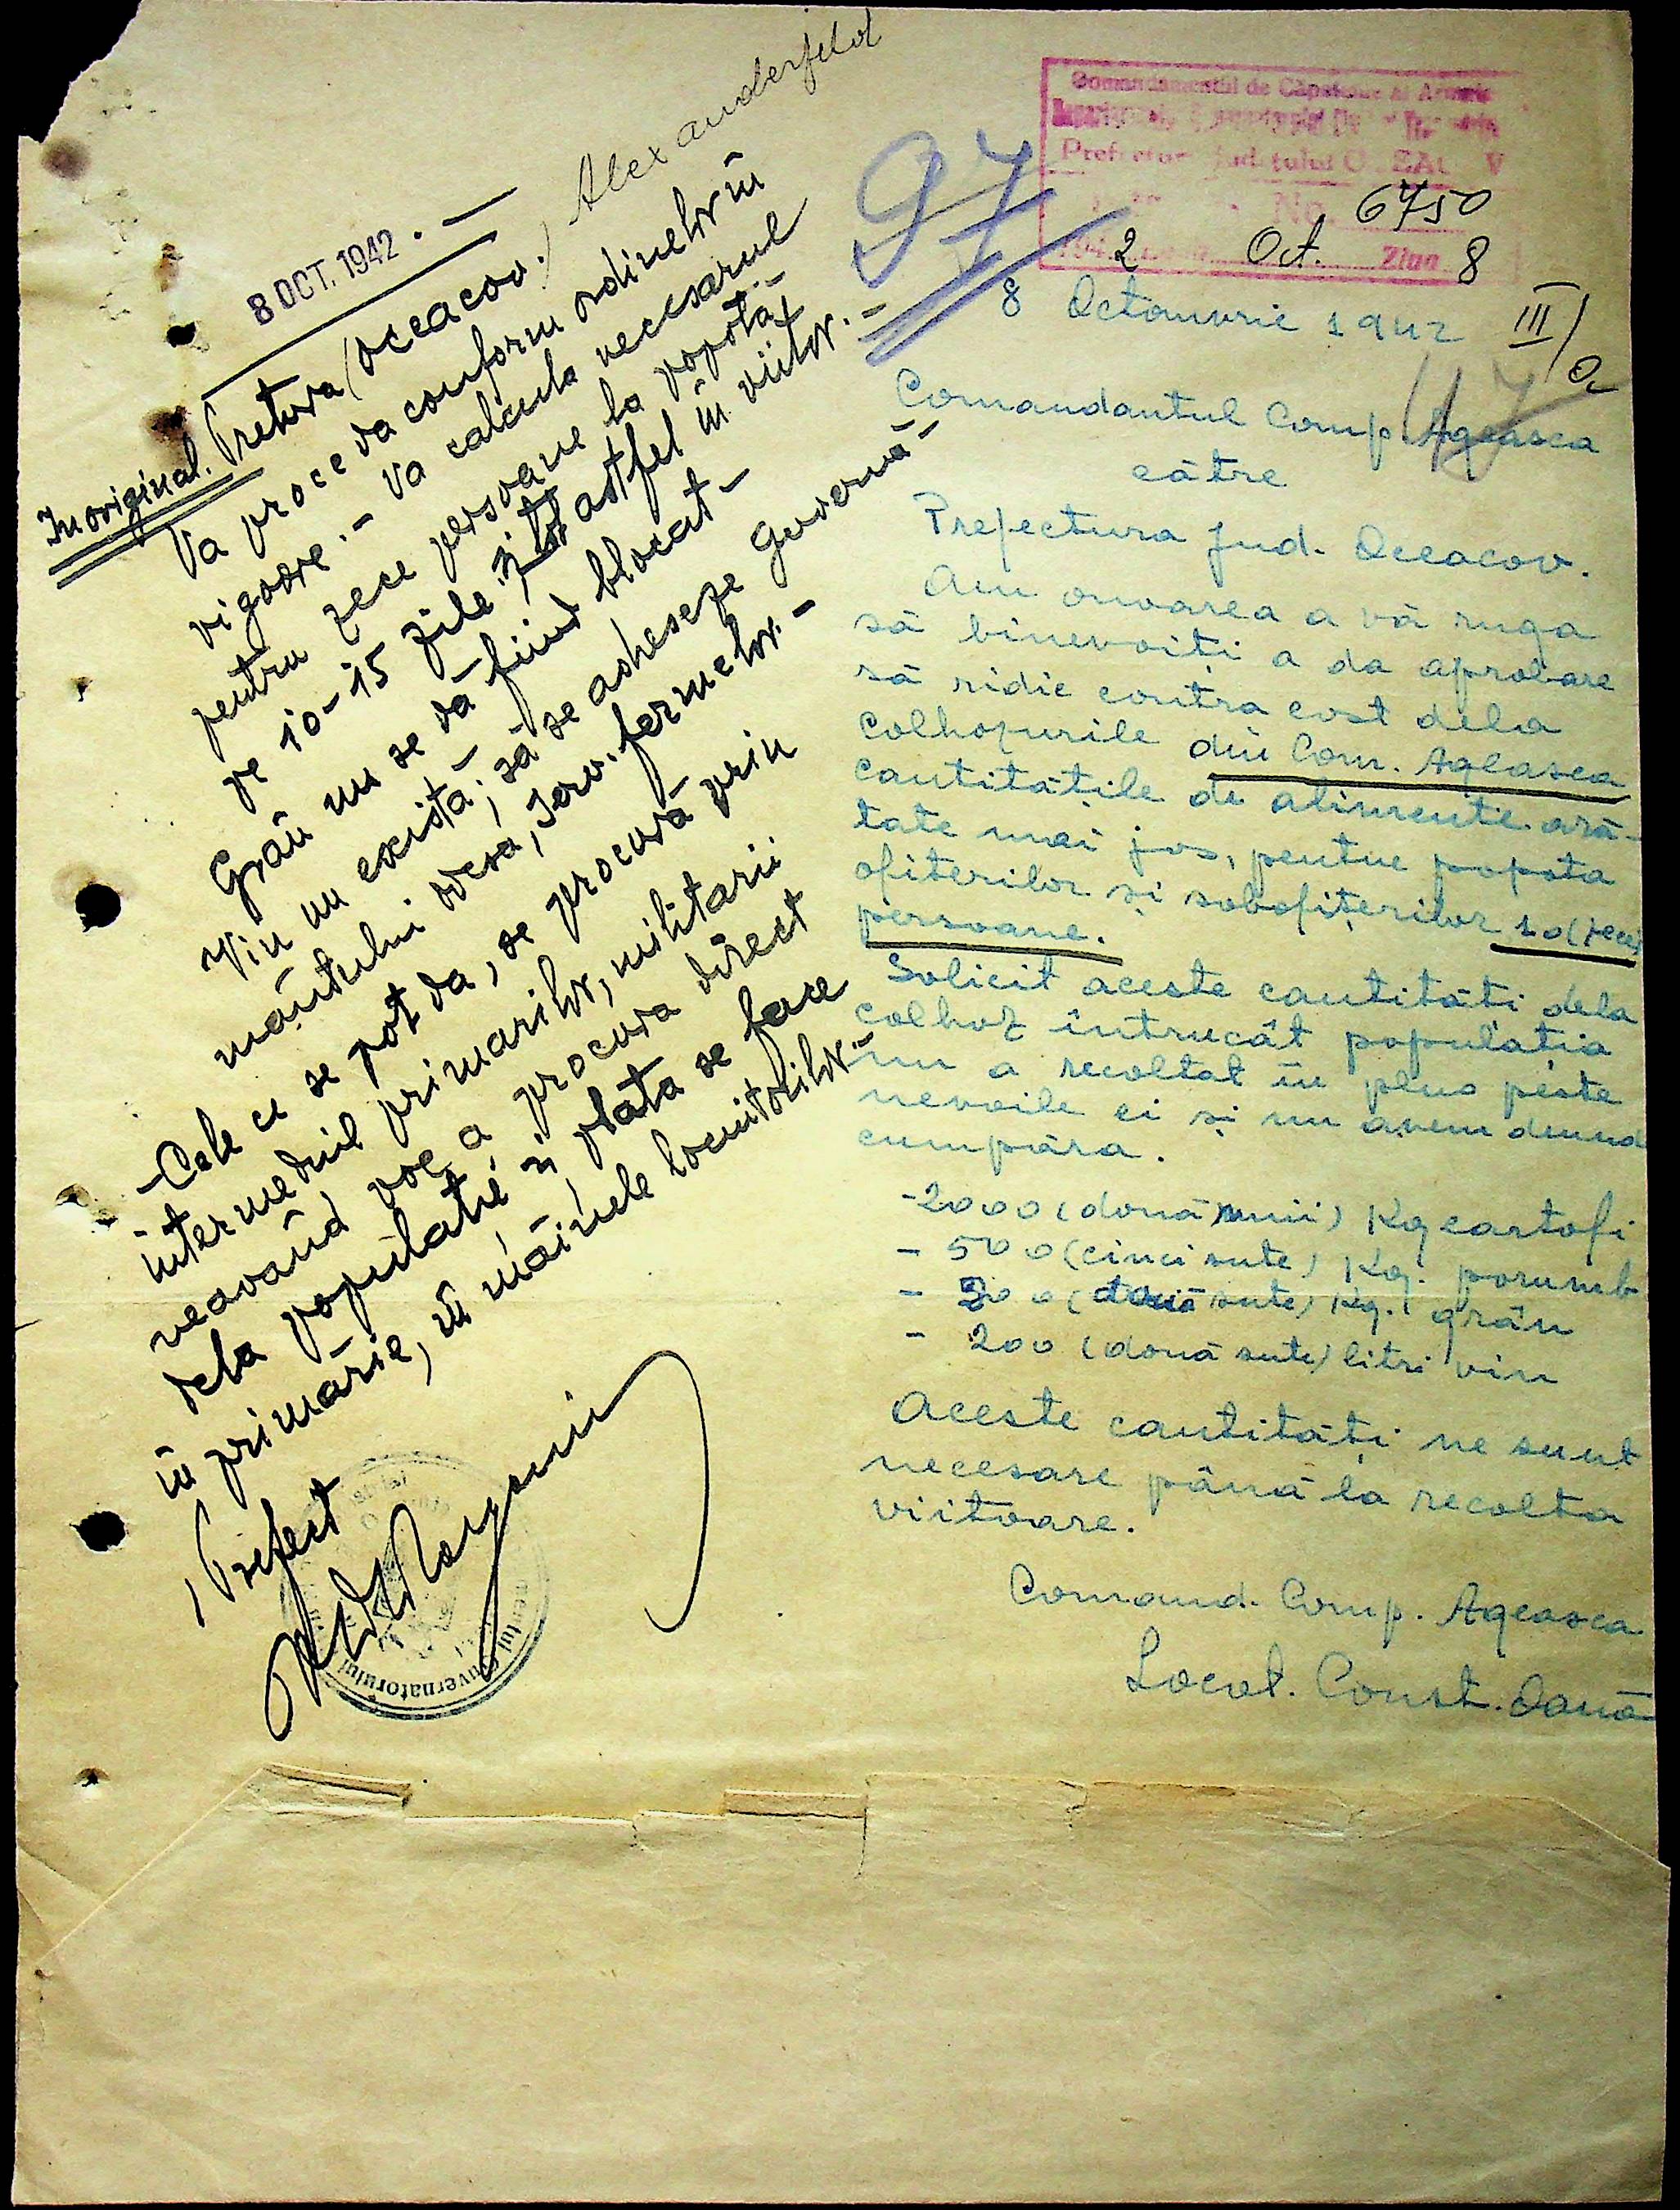 Alexanderfeld
8 OCT. 1942. —
In original. Pretura (Oceacov.)
Va proceda conform ordinelor în
vigoare. – Va calcula necesarul
pentru zece persoane la popotă –
pe 10-15 zile și tot astfel în viitor. –
Grâu nu se dă fiind blocat –
Vin nu există; să se adreseze Guvernă-
mântului Odesa, Serv. fermelor. –
– Cele ce se pot da, se procură prin
intermediul primarilor, militarii
neavând voe a procura direct
dela populație și plata se face
în primărie, în mâinele locuitorilor –
Prefect
Guvernatorului
97
Comandamentul de Căpetenie al Armatei
Prefectura Județului OCEACOV
No. 6750
1942 Luna Oct. Ziua 8
8 Octomvrie 1942
III/a
Comandantul Comp. Ageasca
către
Prefectura Jud. Oceacov.
Am onoarea a vă ruga
să binevoiți a da aprobare
să ridic contra cost dela
Colhozurile din Com. Ageasca
cantitățile de alimente ară-
tate mai jos, pentru popota
ofițerilor și subofițerilor 10 (zece)
persoane.
Solicit aceste cantități dela
colhoz întrucât populația
nu a recoltat în plus peste
nevoile ei și nu avem deunde
cumpăra.
- 2000 (două mii) Kg cartofi
- 500 (cinci sute) Kg. porumb
- 200 (două sute) Kg. grâu
- 200 (două sute) litri vin
Aceste cantități ne sunt
necesare până la recolta
viitoare.
Comand. Comp. Ageasca
Locot. Const. Dană